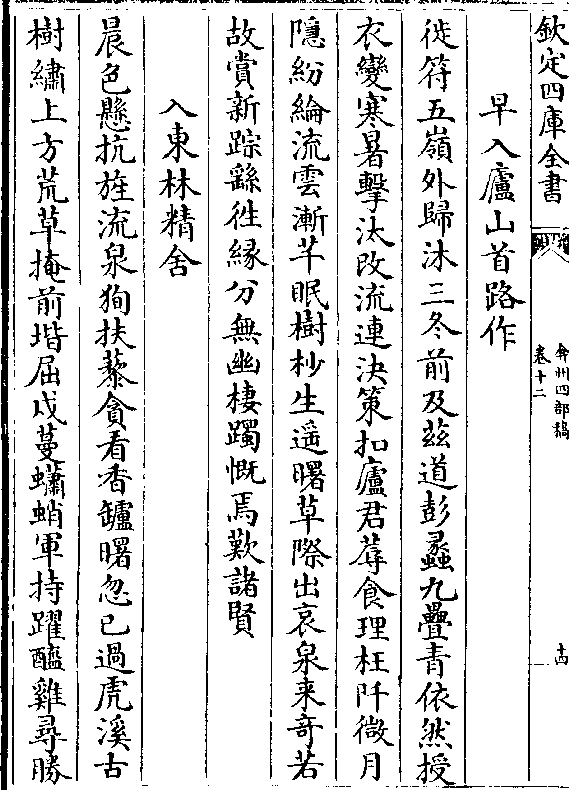 欽定四庫全書
弇州四部稿
卷十二
十四
早入廬山首路作
徙符五嶺外歸沐三冬前及茲道彭蠡九疊青依然授
衣變寒暑擊汰改流連決策扣廬君蓐食理枉阡微月
隱紛綸流雲漸芊眠樹杪生遥曙草際出哀泉来奇若
故賞新踪繇徃緣分無幽棲躅慨焉歎諸賢
入東林精舍
晨色懸抗旌流泉狥扶藜貪看香鑪曙忽已過虎溪古
樹繡上方荒草掩前堦屈戍蔓蠨蛸軍持躍醯雞尋勝